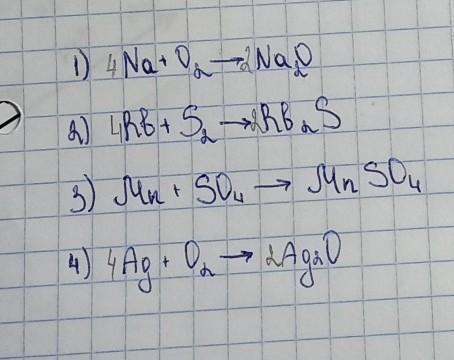 1) 4Na + O₂ → 2Na₂O
2) 4RB + S₂ → 2RB₂S
3) Mn + SO₄ → MnSO₄
4) 4Ag + O₂ → 2Ag₂O